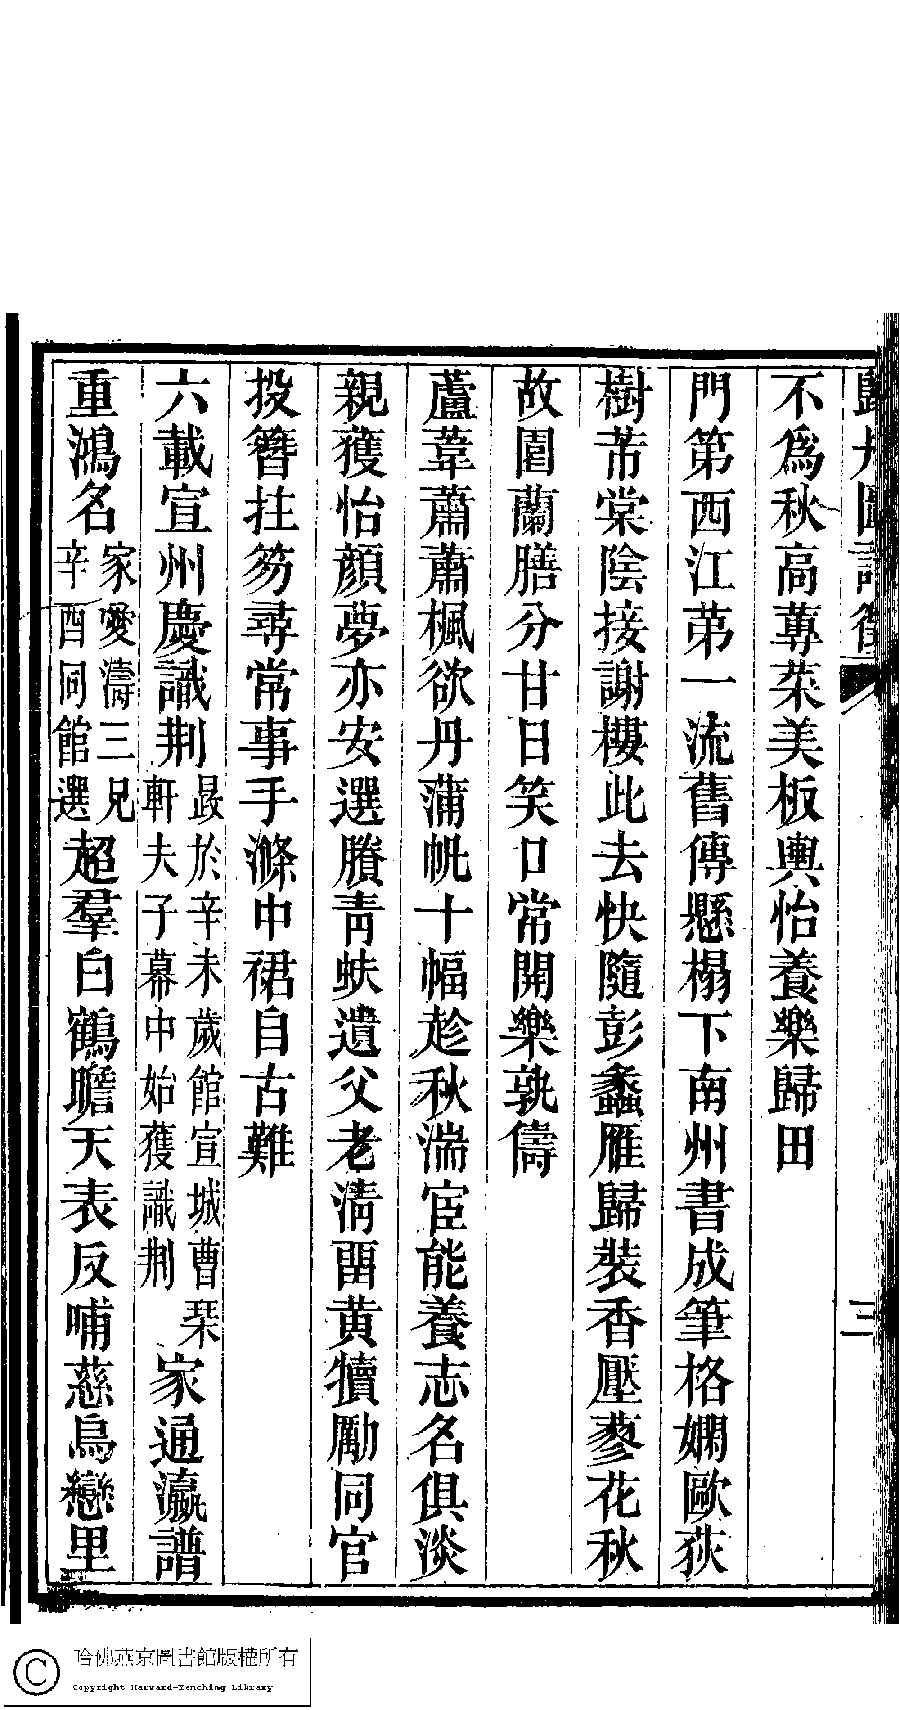 歸舟圖詩 三
不爲秋高蓴菜美板輿怡養樂歸田
門第西江苐一流舊傳懸榻下南州書成筆格嫻歐荻
樹芾棠陰接謝樓此去快隨彭蠡雁歸裝香壓蓼花秋
故園蘭膳分甘日笑口常開樂孰儔
蘆葦蕭蕭楓欲丹蒲帆十幅趁秋湍宦能養志名俱淡
親獲怡顏夢亦安選賸青蚨遺父老淸畱黃犢勵同官
投簪拄笏尋常事手滌中裙自古難
六載宣州慶識荆
於辛未歲館宣城曹琹
軒夫子幕中始獲識荆
家通瀛譜
重鴻名
家愛濤三兄
辛酉同館選
超羣白鶴瞻天表反哺慈烏戀里
哈佛燕京圖書館版權所有
Copyright Harvard-Yenching Library